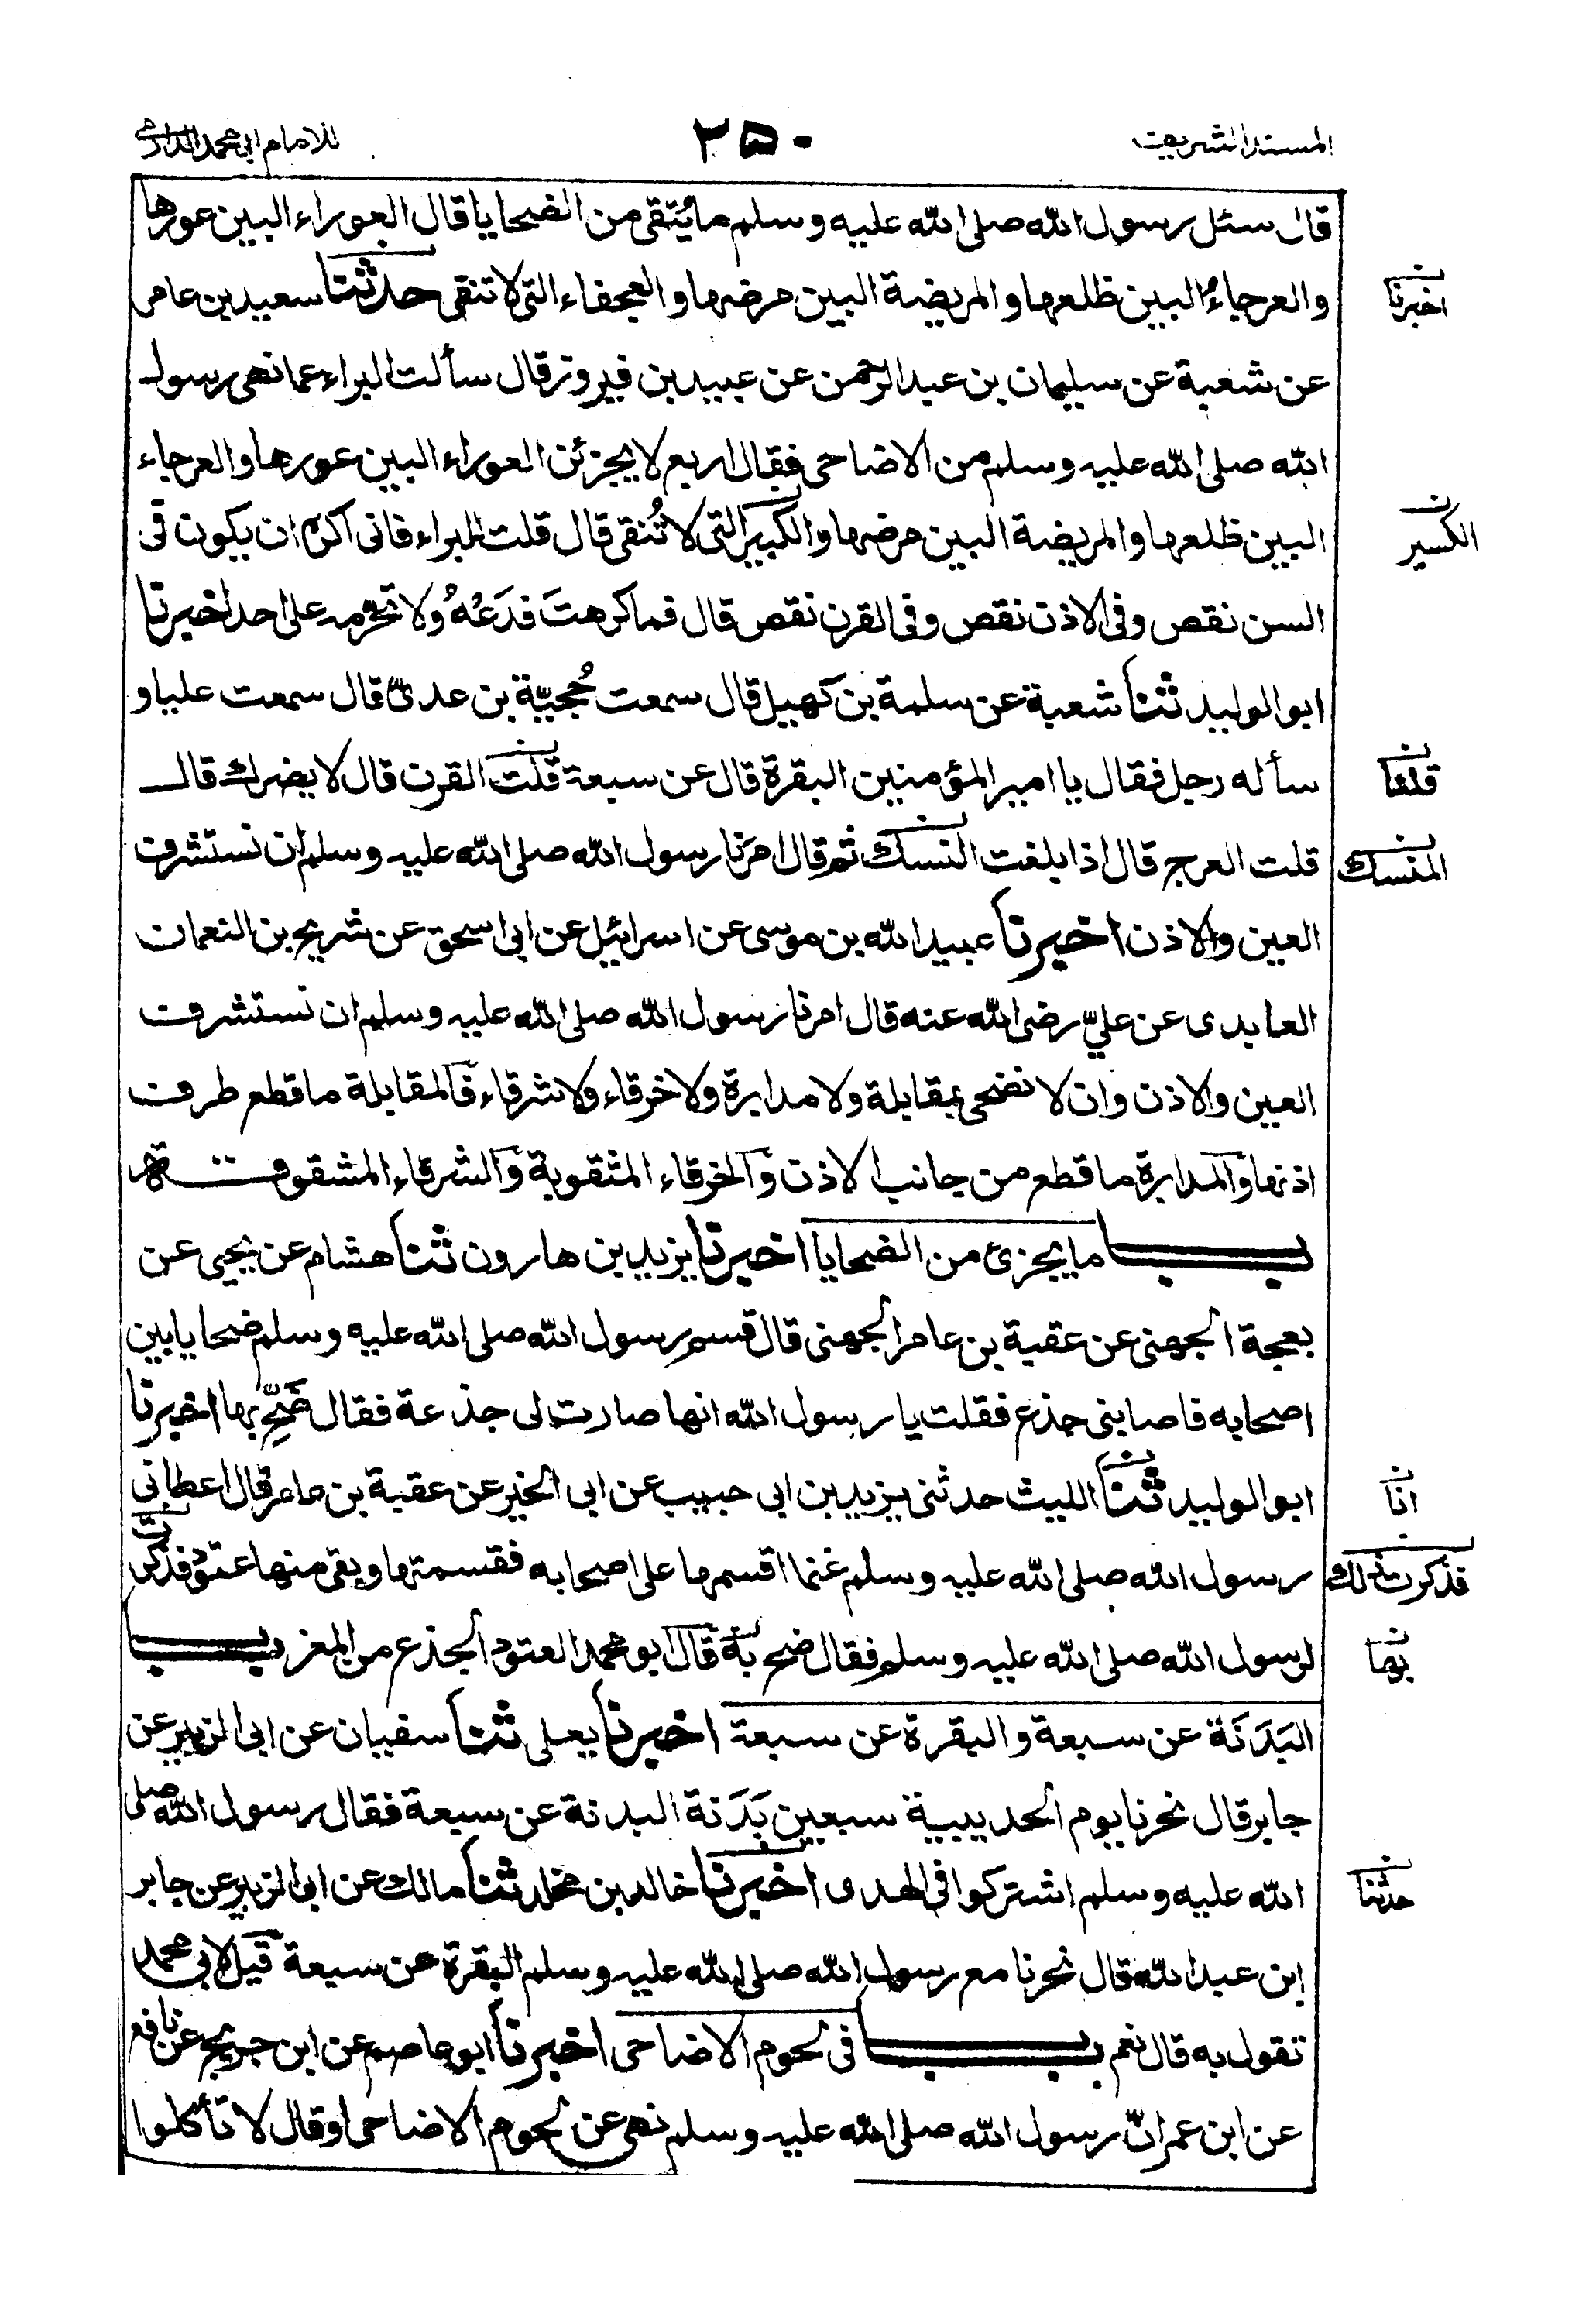 المسند الشريف ٢٥٠ للامام ابى محمد الدارمى
قال سئل رسول الله صلى الله عليه وسلم ما يُتقى من الضحايا قال العوراء البين عورها
والعرجاءُ البين ظلعها والمريضة البين مرضها والعجفاء التى لا تنقى حدثنا سعيد بن عامر
اخبرنا
عن شعبة عن سليمان بن عبد الرحمن عن عبيد بن فيروز قال سألت البراء عما نهى رسول
الله صلى الله عليه وسلم من الاضاحى فقال اربع لا يجزئن العوراء البين عورها والعرجاء
البين ظلعها والمريضة البين مرضها والكبير التى لا تُنقى قال قلت للبراء فانى اكره ان يكون فى
الكسير
السن نقص وفى الاذن نقص وفى القرن نقص قال فما كرهتَ فدَعْهُ ولا تحرمه على احد اخبرنا
ابو الوليد ثنا شعبة عن سلمة بن كهيل قال سمعت حُجيّة بن عدىّ قال سمعت عليا و
سأله رجل فقال يا امير المؤمنين البقرة قال عن سبعة قلت القرن قال لا يضرك قال
قلنا
قلت العرج قال اذا بلغت النسك ثم قال امرنا رسول الله صلى الله عليه وسلم ان نستشرف
المنسك
العين والاذن اخبرنا عبيد الله بن موسى عن اسرائيل عن ابى اسحق عن شريح بن النعمان
العابدى عن علىّ رضى الله عنه قال امرنا رسول الله صلى الله عليه وسلم ان نستشرف
العين والاذن وان لا نضحى بمقابلة ولا مدابرة ولا خرقاء ولا شرقاء فالمقابلة ما قطع طرف
اذنها والمدابرة ما قطع من جانب الاذن والخرقاء المثقوبة والشرقاء المشقوقة
باب ما يجزئ من الضحايا اخبرنا يزيد بن هارون ثنا هشام عن يحيى عن
بعجة الجهنى عن عقبة بن عامر الجهنى قال قسم رسول الله صلى الله عليه وسلم ضحايا بين
اصحابه فاصابنى جذع فقلت يا رسول الله انها صارت لى جذعة فقال ضَحِّ بها اخبرنا
ابو الوليد ثنا الليث حدثنى يزيد بن ابى حبيب عن ابى الخير عن عقبة بن عامر قال اعطانى
انا
رسول الله صلى الله عليه وسلم غنما اقسمها على اصحابه فقسمتها وبقى منها عتود فذكرتُ
فذكرت ذلك
لرسول الله صلى الله عليه وسلم فقال ضح به قال ابو محمد العتود الجذع من المعز باب
بها
البَدَنَة عن سبعة والبقرة عن سبعة اخبرنا يعلى ثنا سفيان عن ابى الزبير عن
جابر قال نحرنا يوم الحديبية سبعين بَدَنة البدنة عن سبعة فقال رسول الله صلى
الله عليه وسلم اشتركوا فى الهدى اخبرنا خالد بن مخلد ثنا مالك عن ابى الزبير عن جابر
حدثنا
ابن عبد الله قال نحرنا مع رسول الله صلى الله عليه وسلم البقرة عن سبعة قيل لابى محمد
تقول به قال نعم باب فى لحوم الاضاحى اخبرنا ابو عاصم عن ابن جريج عن نافع
عن ابن عمر انّ رسول الله صلى الله عليه وسلم نهى عن لحوم الاضاحى او قال لا تأكلوا